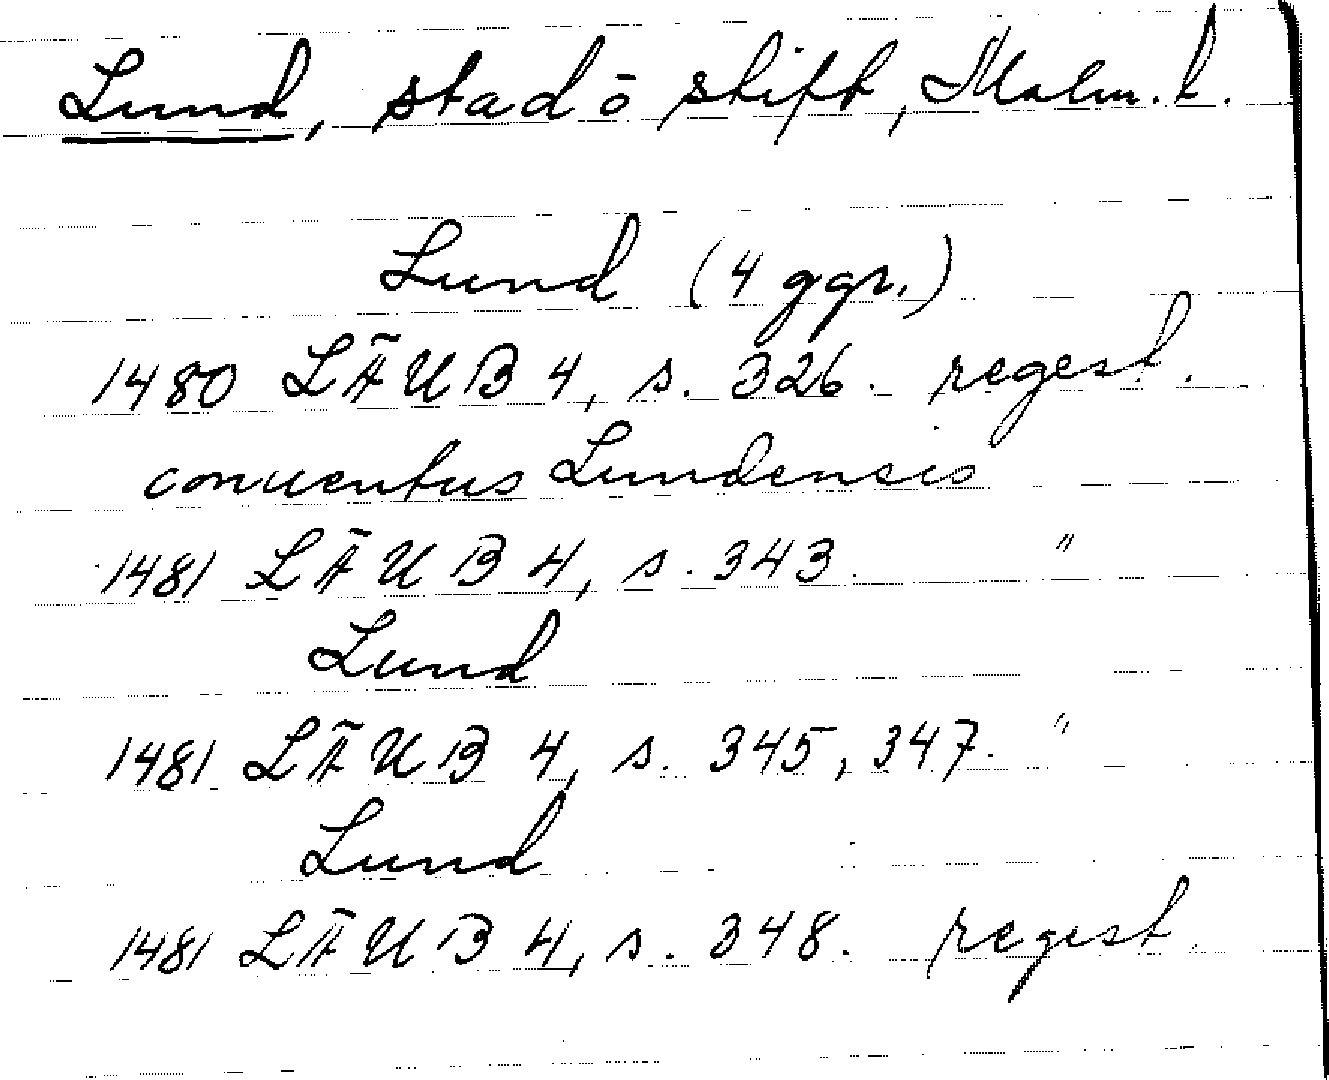 Lund, stad ō stift, Malm. l.
Lund (4 ggr.)
1480 LÄUB 4, s. 326. regest.
conuentus Lundensis
1481 LÄUB 4, s. 343. "
Lund
1481 LÄUB 4, s. 345, 347. "
Lund
1481 LÄUB 4, s. 348. regest